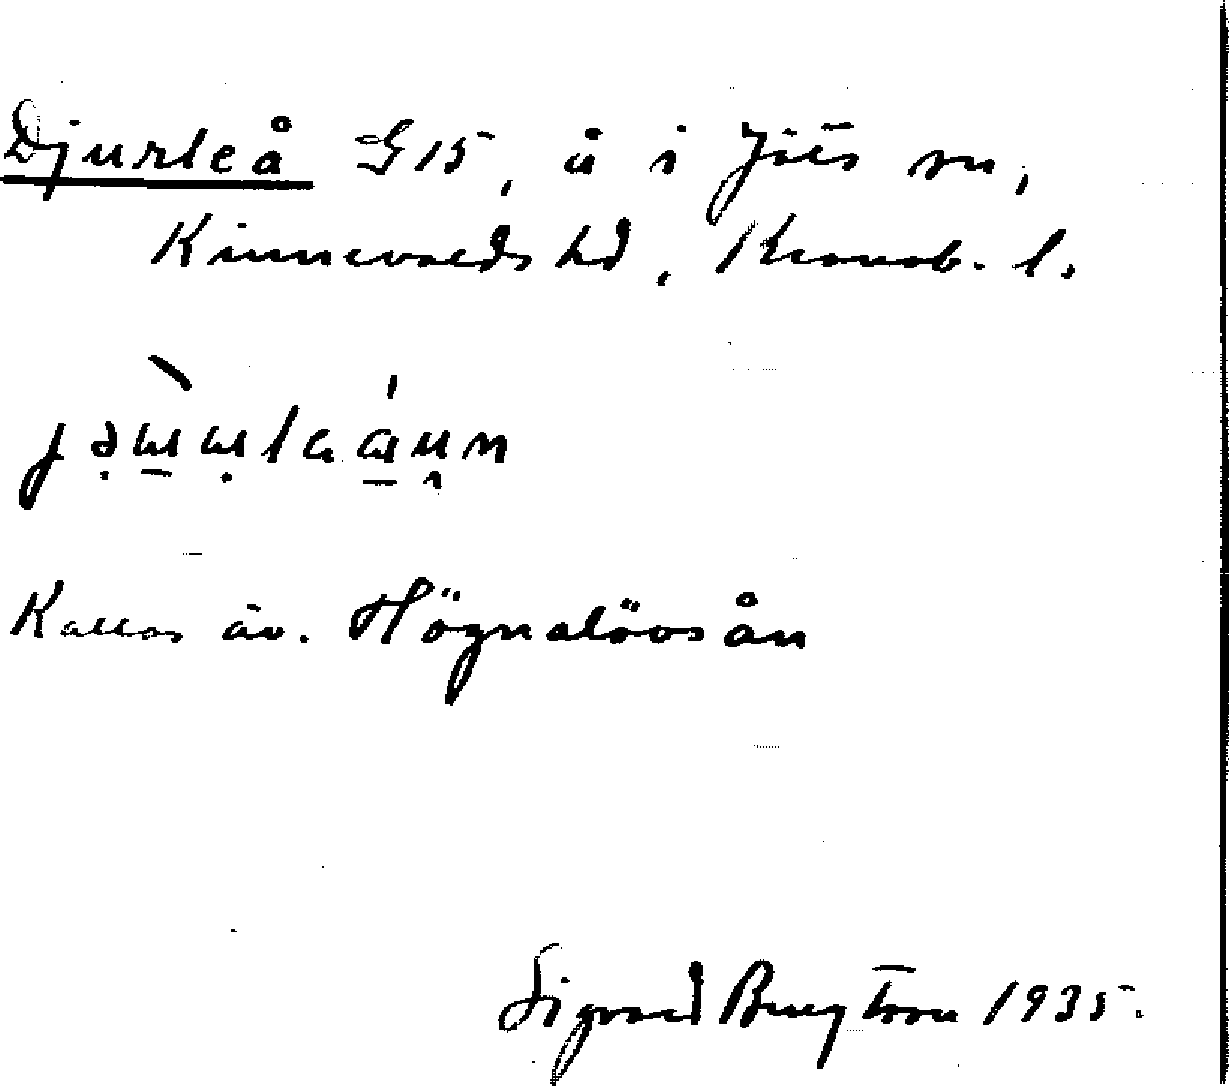 Djurleå G15, å i Jäts sn,
Kinnevalds hd, Kronob. l.
Kallas äv. Högnalövsån
Sigurd Bengtson 1935.